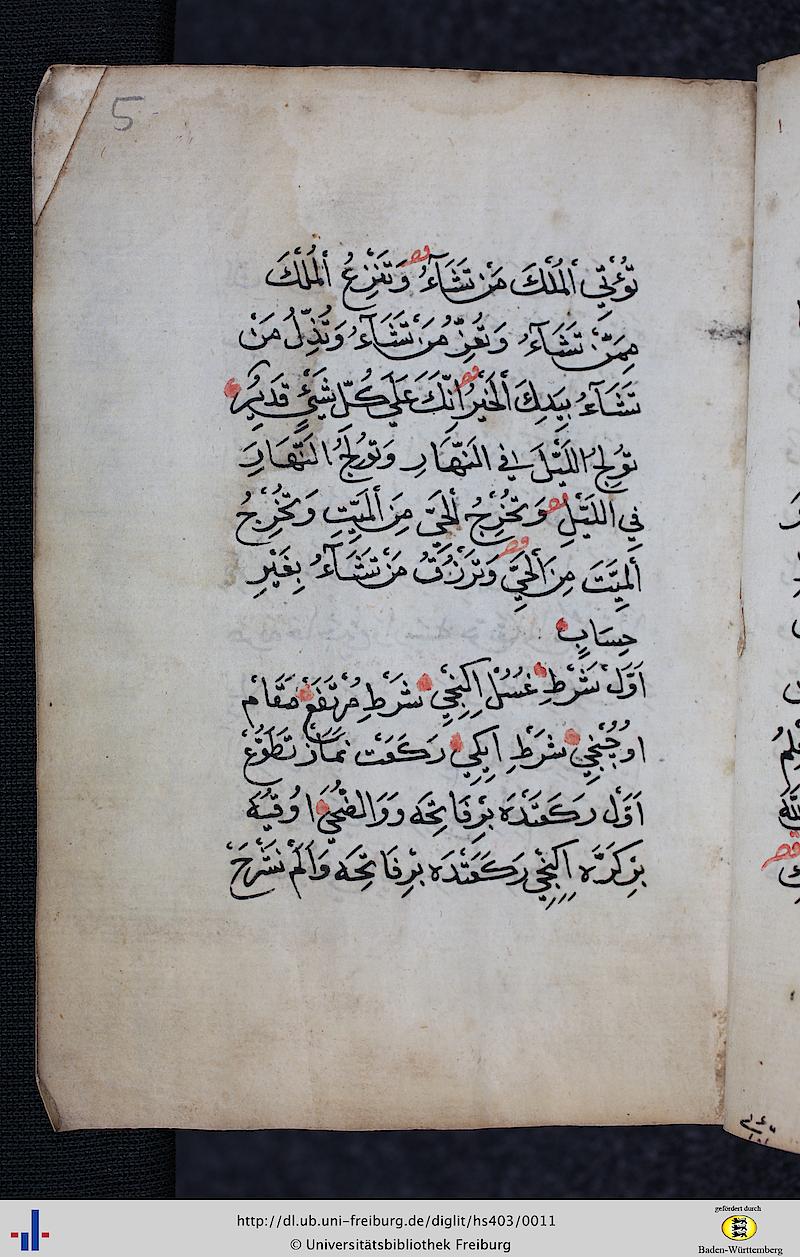 5
تُؤْتِي الْمُلْكَ مَنْ تَشَاءُ وَتَنْزِعُ الْمُلْكَ
مِمَّنْ تَشَاءُ وَتُعِزُّ مَنْ تَشَاءُ وَتُذِلُّ مَنْ
تَشَاءُ بِيَدِكَ الْخَيْرُ اِنَّكَ عَلَى كُلِّ شَيْءٍ قَدِيرٌ
تُولِجُ اللَّيْلَ فِي النَّهَارِ وَتُولِجُ النَّهَارَ
فِي اللَّيْلِ وَتُخْرِجُ الْحَيَّ مِنَ الْمَيِّتِ وَتُخْرِجُ
الْمَيِّتَ مِنَ الْحَيِّ وَتَرْزُقُ مَنْ تَشَاءُ بِغَيْرِ
حِسَابٍ
اَوَّلْ شَرْطِ غُسُلْ اِكِنْجِي شَرْطِ مُرْتَفَعْ مَقَامْ
اوُچُنْجِي شَرْطِ اِيكِي رَكَعَتْ نَمَازْ تَطَوُّعْ
اَوَّلْ رَكَعَتْدَه بِرْ فَاتِحَه وَوَالضُّحَى اوُقُيَه
بِرْ كَرَّه اِكِنْجِي رَكَعَتْدَه بِرْ فَاتِحَه وَاَلَمْ نَشْرَحْ
http://dl.ub.uni-freiburg.de/diglit/hs403/0011
© Universitätsbibliothek Freiburg
gefördert durch
Baden-Württemberg